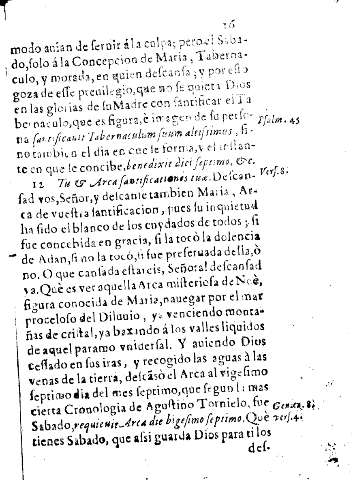 26
modo auian de seruir á la culpa; pero el Saba-
do, solo á la Concepcion de Maria, Taberna-
culo, y morada, en quien descansa; y por esto
goza de esse preuilegio, que no se quieta Dios
en las glorias de su Madre con santificar el Ta
bernaculo, que es figura, è imagen de su perso-
na sanctificauit Tabernaculum suum altissimus, si-
no tambien el dia en que se forma, y el instan-
te en que le concibe, benedixit diei septimo, &c.
12 Tu & Arca santificationis tuæ. Descan-
sad vos, Señor, y descanse tambien Maria, Ar-
ca de vuestra santificacion, pues su inquietud
ha sido el blanco de los cuydados de todos; si
fue concebida en gracia, si la tocò la dolencia
de Adan, si no la tocò, si fue preseruada della, ò
no. O que cansada estareis, Señora! descansad
ya. Què es ver aquella Arca misteriosa de Noè,
figura conocida de Maria, nauegar por el mar
proceloso del Diluuio, ya venciendo monta-
ñas de cristal, ya baxando à los valles liquidos
de aquel paramo vniuersal. Y auiendo Dios
cessado en sus iras, y recogido las aguas à las
venas de la tierra, descãsò el Arca al vigesimo
septimo dia del mes septimo, que segun la mas
cierta Cronologia de Agustino Tornielo, fue
Sabado, requieuit Arca die vigesimo septimo. Què
tienes Sabado, que assi guarda Dios para ti los
des-
Psalm. 45
Vers. 8.
Genes. 8.
vers. 4.